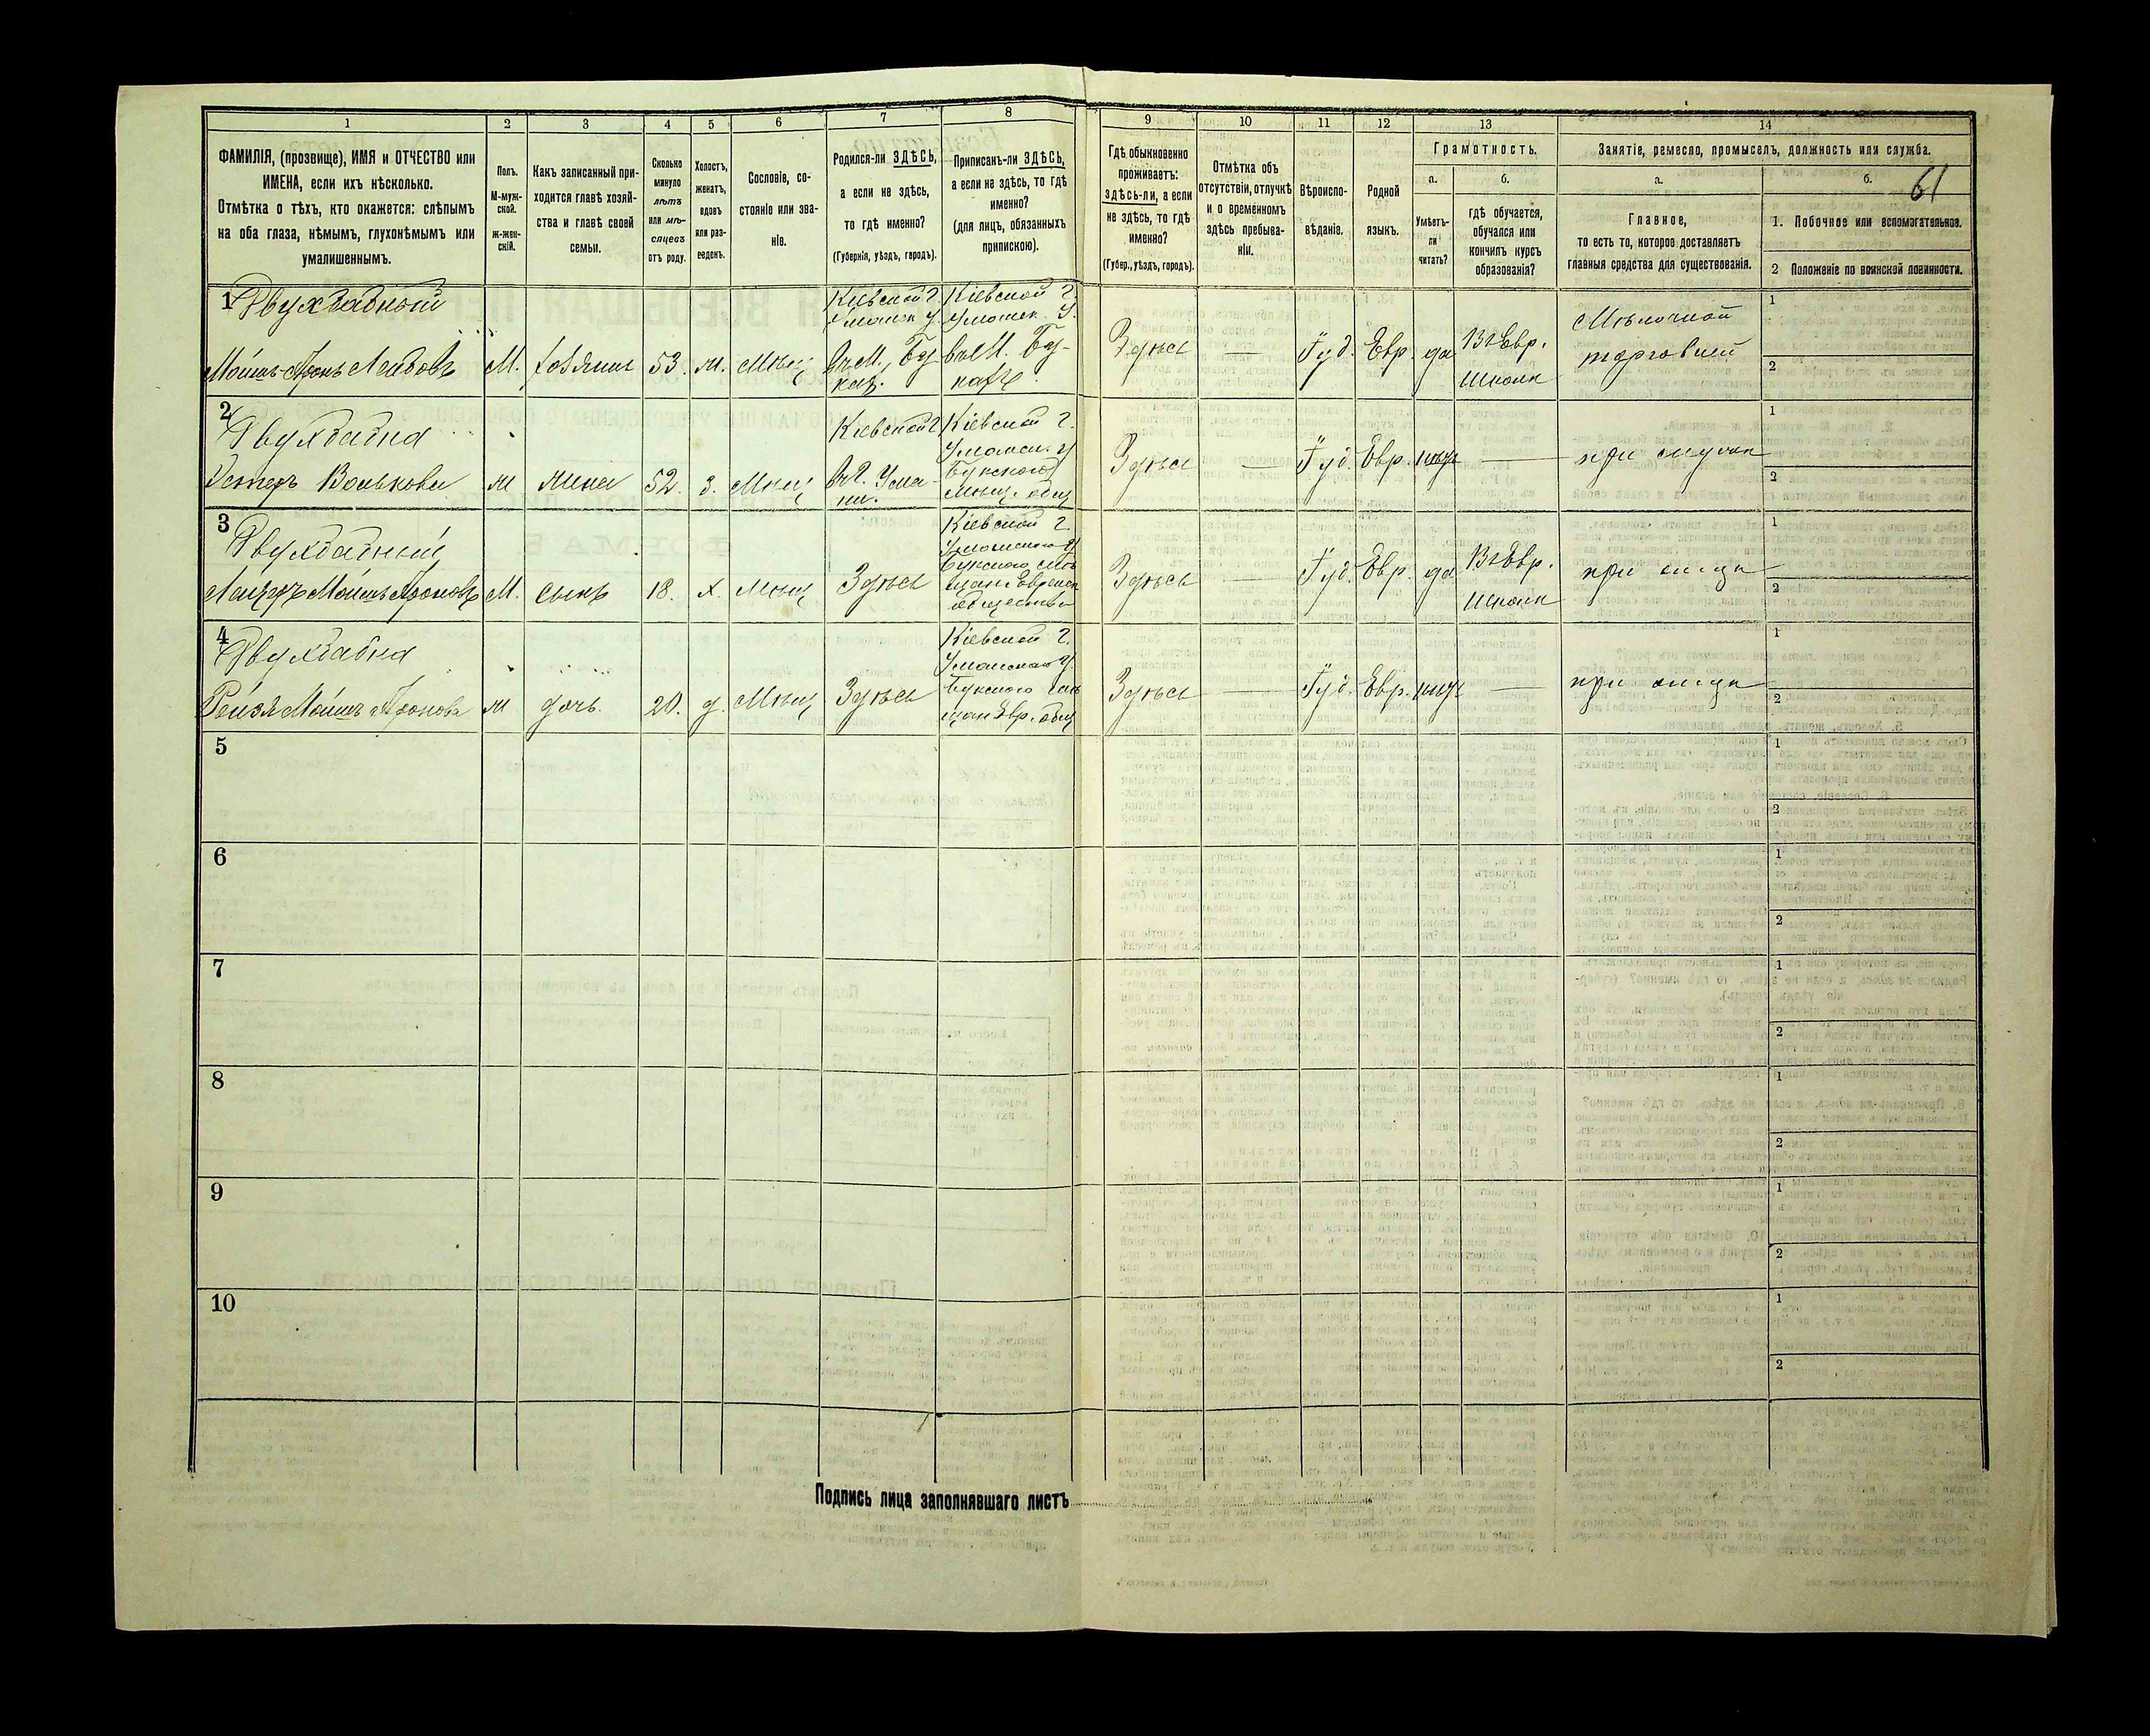 1 2 3 4 5 6 7 8 9 10 11 12 13 14
61
ФАМИЛІЯ, (прозвище), ИМЯ и ОТЧЕСТВО или
ИМЕНА, если ихъ нѣсколько.
Отмѣтка о тѣхъ, кто окажется: слѣпымъ
на оба глаза, нѣмымъ, глухонѣмымъ или
умалишеннымъ.
Полъ.
М-муж-
ской.
ж-жен-
скій.
Какъ записанный при-
ходится главѣ хозяй-
ства и главѣ своей
семьи.
Сколько
минуло
лѣтъ
или мѣ-
сяцевъ
отъ роду.
Холостъ,
женатъ,
вдовъ
или раз-
веденъ.
Сословіе, со-
стояніе или зва-
ніе.
Родился-ли ЗДѢСЬ,
а если не здѣсь,
то гдѣ именно?
(Губернія, уѣздъ, городъ).
Приписанъ-ли ЗДѢСЬ,
а если не здѣсь, то гдѣ
именно?
(для лицъ, обязанныхъ
припискою).
Гдѣ обыкновенно
проживаетъ:
здѣсь-ли, а если
не здѣсь, то гдѣ
именно?
(Губер., уѣздъ, городъ).
Отмѣтка объ
отсутствіи, отлучкѣ
и о временномъ
здѣсь пребыва-
ніи.
Вѣроиспо-
вѣданіе.
Родной
языкъ.
Грамотность.
а.
Умѣетъ-
ли
читать?
б.
гдѣ обучается,
обучался или
кончилъ курсъ
образованія?
Занятіе, ремесло, промыселъ, должность или служба.
а.
Главное,
то есть то, которое доставляетъ
главныя средства для существованія.
б.
1. Побочное или вспомогательное.
2 Положеніе по воинской повинности.
1
Двухбабный
Мошъ-Аронъ Лейбовъ
М.
хозяинъ
53.
ж.
Мѣщ
Кіевской г.
Уманск у.
въ М.
Кіевской г.
Уманск. у.
Здѣсь
—
Іуд.
Евр.
да
Въ Евр.
школѣ
Мѣлочной
торговлей
1
2
2
Двухбабна
Волькова
ж
жена
52.
з.
Мѣщ
Кіевской г
Ума-
ни.
Кіевской г.
Уманск. у
Букского
Мѣщ. общ
Здѣсь
—
Іуд.
Евр.
—
при
1
2
3
Двухбабный
Мошъ-Ароновъ
М.
сынъ
18.
х.
Мѣщ
Здѣсь
Кіевской г.
Уманского у
Букского мѣ-
щан Еврейск
общества
Здѣсь
—
Іуд.
Евр.
да
Въ Евр.
школѣ
при отцѣ
1
2
4
Двухбабна
Рейзя Мошъ Аронова
ж
дочь.
20.
д.
Мѣщ
Здѣсь
Кіевской г.
Уманского у
Букского мѣ-
щан Евр. общ
Здѣсь
—
Іуд.
Евр.
—
при отцѣ
1
2
5
1
2
6
1
2
7
1
2
8
1
2
9
1
2
10
1
2
Подпись лица заполнявшаго листъ